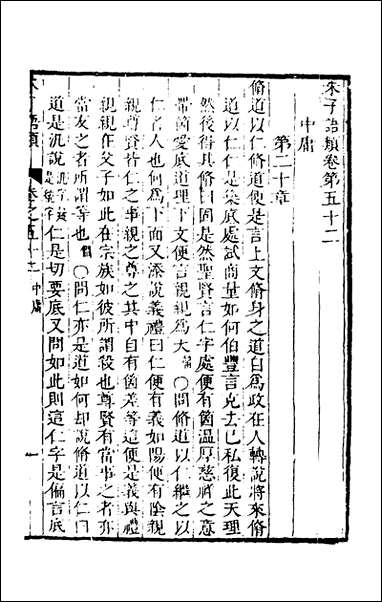 朱子語類卷第五十二
中庸
第二十章
脩道以仁脩道便是言上文脩身之道自爲政在人轉說將來脩
道以仁仁是築底處試商量如何伯豐言克去己私復此天理
然後得其脩曰固是然聖賢言仁字處便有箇溫厚慈祥之意
帶箇愛底道理下文便言親親爲大〇問脩道以仁繼之以
仁者人也何爲下面又添說義禮曰仁便有義如陽便有陰親
親尊賢皆仁之事親之尊之其中自有箇差等這便是義與禮
親親在父子如此在宗族如彼所謂殺也尊賢有當事之者亦
當友之者所謂等也〇問仁亦是道如何却說脩道以仁曰
道是汎說仁是切要底又問如此則這仁字是偏言底
中庸
一